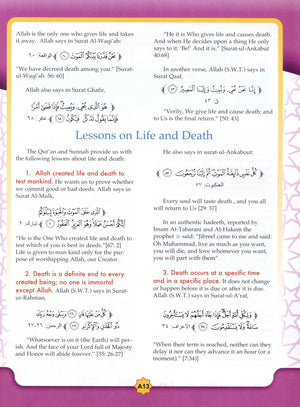 Allah is the only one who gives life and takes
it away. Allah says in Surat Al-Waqi'ah:
﴿ نَحْنُ قَدَّرْنَا بَيْنَكُمُ ٱلْمَوْتَ ﴾ الواقعة: ٦٠
"We have decreed death among you." [Surat-
ul-Waqi'ah 56: 60]
Allah also says in Surat Ghafir,
﴿ هُوَ ٱلَّذِى يُحْىِۦ وَيُمِيتُ فَإِذَا قَضَىٰٓ أَمْرًا
فَإِنَّمَا يَقُولُ لَهُۥ كُن فَيَكُونُ ﴾ غافر: ٦٨
"It is He Who gives life and causes death.
And when He decides upon a thing He only
says to it: 'Be!' And it is." [Surat-ul-Ankabut
40:68]
In another verse, Allah (S.W.T.) says in
Surat Qaaf,
﴿ إِنَّا نَحْنُ نُحْىِۦ وَنُمِيتُ وَإِلَيْنَا ٱلْمَصِيرُ ﴾
ق: ٤٣
"Verily, We give life and cause death; and
to Us is the final return." [50: 43]
Lessons on Life and Death
The Qur'an and Sunnah provide us with
the following lessons about life and death.
1. Allah created life and death to
test mankind. He wants us to prove whether
we commit good or bad deeds. Allah says in
Surat Al-Mulk,
﴿ ٱلَّذِى خَلَقَ ٱلْمَوْتَ وَٱلْحَيَوٰةَ لِيَبْلُوَكُمْ
أَيُّكُمْ أَحْسَنُ عَمَلًا وَهُوَ ٱلْعَزِيزُ ٱلْغَفُورُ ﴾
"He is the One Who created life and death to
test which of you is best in deeds." [67: 2]
Life is given to man kind only for the pur-
pose of worshipping Allah, our Creator.
2. Death is a definite end to every
created being; no one is immortal
except Allah. Allah (S.W.T.) says in Surat-
ur-Rahman,
﴿ كُلُّ مَنْ عَلَيْهَا فَانٍ وَيَبْقَىٰ وَجْهُ رَبِّكَ
ذُو ٱلْجَلَٰلِ وَٱلْإِكْرَامِ ﴾ الرحمن: ٢٦-٢٧
"Whatsoever is on it (the earth) will per-
ish. And the face of your Lord full of Majesty
and Honor will abide forever." [55: 26-27]
He also says in surat-ul-Ankabut:
﴿ كُلُّ نَفْسٍ ذَآئِقَةُ ٱلْمَوْتِ ثُمَّ إِلَيْنَا تُرْجَعُونَ ﴾
العنكبوت: ٥٧
Every soul will taste death , and you all
will return to Us [29: 57]
In an authentic hadeeth, reported by
Imam At-Tabarani and Al-Hakem the
prophet said: "Jibreel came to me and said:
Oh Muhammad, live as much as you want,
you will die, and love whomever you want,
you will part with them"
3. Death occurs at a specific time
and in a specific place. It does not change
or happen before it is due or after it is due.
Allah (S.W.T.) says in Surat-ul-A'raf,
﴿ فَإِذَا جَآءَ أَجَلُهُمْ لَا يَسْتَأْخِرُونَ
سَاعَةً وَلَا يَسْتَقْدِمُونَ ﴾ الأعراف: ٣٤
"When their term is reached, neither can they
delay it nor can they advance it an hour (or a
moment)." [7:34]
A13